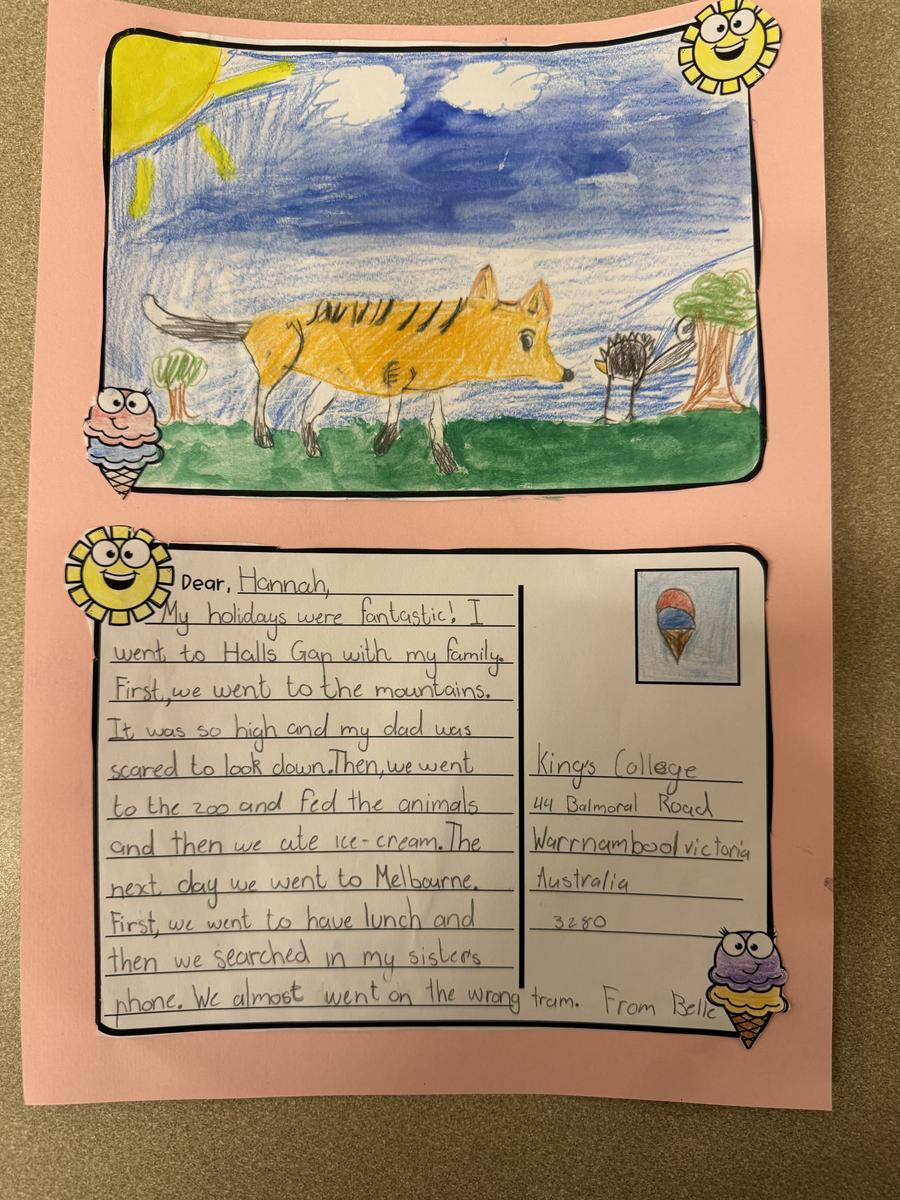 Dear, Hannah,
My holidays were fantastic! I
went to Halls Gap with my family.
First, we went to the mountains.
It was so high and my dad was
scared to look down. Then, we went
to the zoo and fed the animals
and then we ate ice-cream. The
next day we went to Melbourne.
First, we went to have lunch and
then we searched in my sisters
phone. We almost went on the wrong tram. From Belle
Kings College
44 Balmoral Road
Warrnambool victoria
Australia
3280